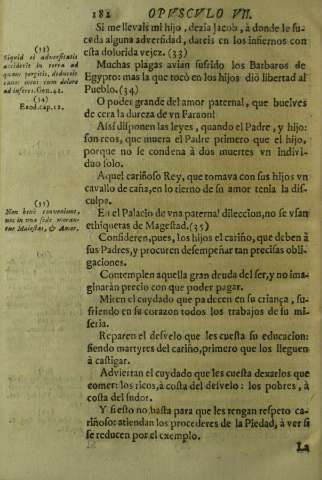 182 OPVSCVLO VII.
Si me llevais mi hijo, dezia Jacob, à donde le su-
ceda alguna adversidad, dareis en los infiernos con
esta dolorida vejez. (33)
(33)
Siquid ei adversitatis
acciderit in terra ad
quam pergitis, deducetis
canos meos cum dolore
ad inferos. Gen. 42.
Muchas plagas avian sufrido los Barbaros de
Egypto: mas la que tocò en los hijos diò libertad al
Pueblo. (34)
(34)
Exod. cap. 12.
O poder grande del amor paternal, que buelves
de cera la dureza de vn Faraon!
Assi disponen las leyes, quando el Padre, y hijo
son reos, que muera el Padre primero que el hijo,
porque no se condena à dos muertes vn Indivi-
duo solo.
Aquel cariñoso Rey, que tomava con sus hijos vn
cavallo de caña, en lo tierno de su amor tenia la dis-
culpa.
En el Palacio de vna paternal dileccion, no se vsan
ethiquetas de Magestad. (35)
(35)
Non benè conveniunt,
nec in vna sede moran-
tur Maiestas, & Amor.
Consideren, pues, los hijos el cariño, que deben à
sus Padres, y procuren desempeñar tan precisas obli-
gaciones.
Contemplen aquella gran deuda del ser, y no ima-
ginaràn precio con que poder pagar.
Miren el cuydado que padecen en su criança, su-
friendo en su corazon todos los trabajos de su mi-
seria.
Reparen el desvelo que les cuesta su educacion:
siendo martyres del cariño, primero que los lleguen
à castigar.
Adviertan el cuydado que les cuesta dexarlos que
comer: los ricos, à costa del desvelo: los pobres, à
costa del sudor.
Y si esto no basta para que les tengan respeto ca-
riñoso: atiendan los procederes de la Piedad, à ver si
se reducen por el exemplo.
La